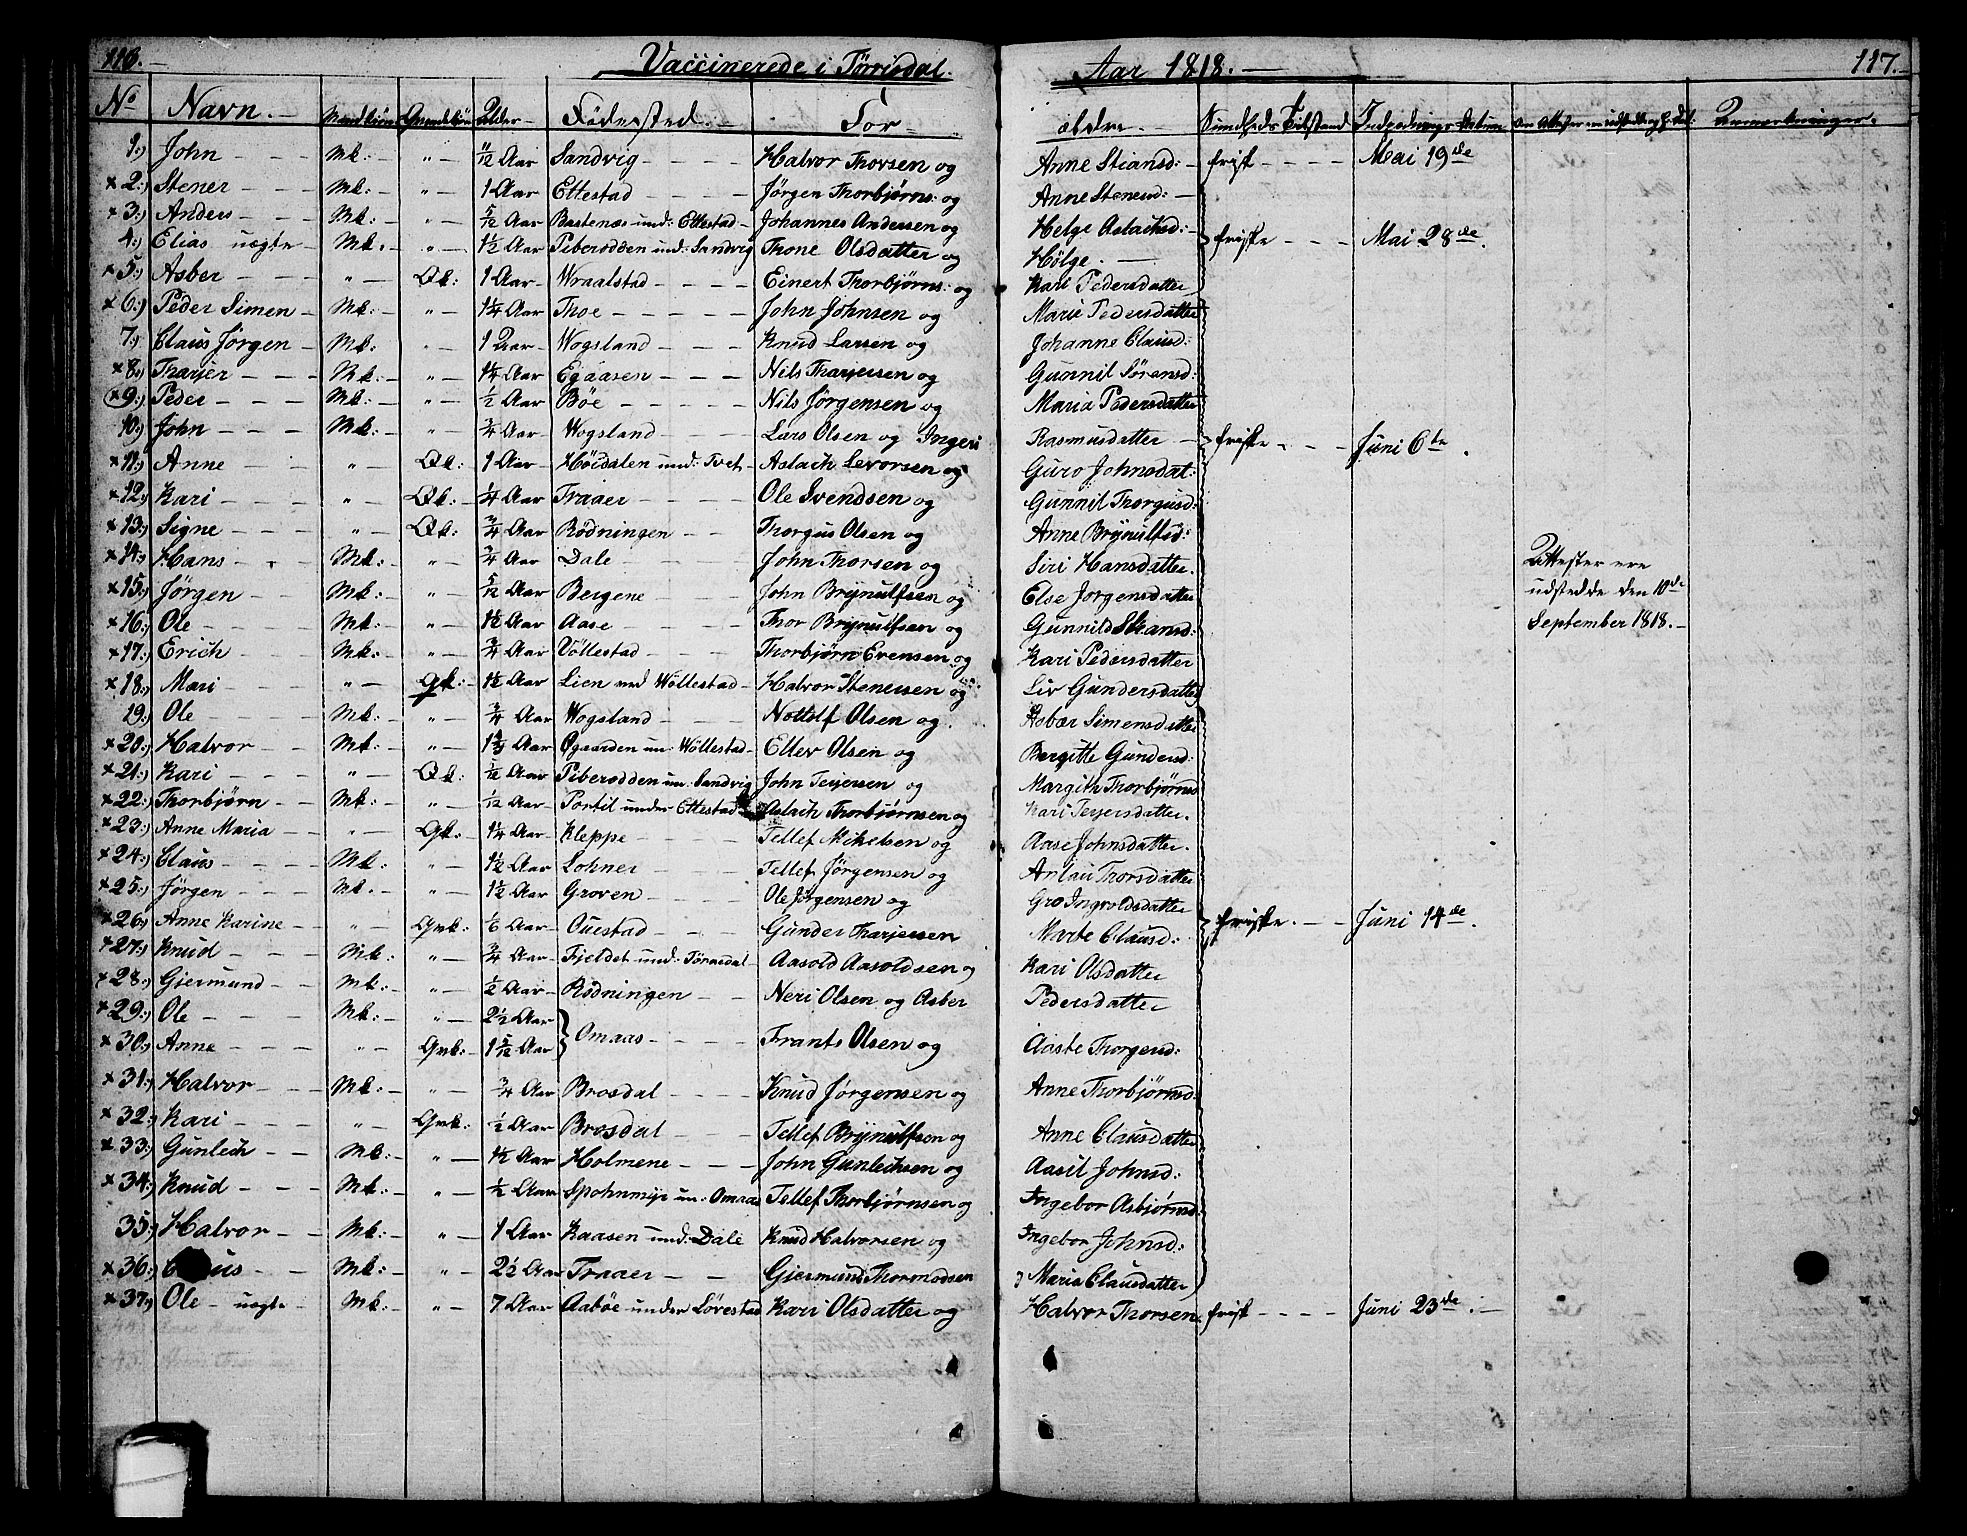 116. Vaccinerede i Törrisdal. Aar 1818. 117.
No Navn. Mandkiön Qvindekiön Alder Födested. For ældre. Sundheds Tilstand Indpodnings Datum Anmerkninger.
1:) John Mk: " 11/12 Aar Sandvig Halvor Thorsen og Anne Stiansd: frisk Mai 19de
x 2:) Stener Mk: " 1 Aar Ettestad Jørgen Thorbjørns: og Anne Stenersd:
x 3:) Anders Mk: " 5/12 Aar Bastenæs und: Ettestad Johannes Andersen og Helge Aslachsd:
4:) Elias uægte Mk: " 1 1/2 Aar Peberodden und: Sandvig Thone Olsdatter og Hölge. friske Mai 28de.
x 5:) Asber " Qk: 1 Aar Wraalstad Einert Thorbjørns: og Kari Pedersdatter
x 6:) Peder Simen Mk: " 1 1/4 Aar Thoe John Johnsen og Marie Pedersdatter
7:) Claus Jörgen Mk: " 1 Aar Wogsland Knud Larsen og Johanne Clausd:
x 8:) Tharjer Mk: " 1 1/4 Aar Egaasen Nils Tharjersen og Gunnil Sørensd:
x 9:) Peder Mk: " 1/2 Aar Böe Nils Jørgensen og Maria Pedersdatter
10:) John Mk: " 3/4 Aar Wogsland Lars Olsen og Ingeri Rasmusdatter friske Juni 6te.
x 11:) Anne " Qk: 1 Aar Höidalen und: Tvet Aslach Levorsen og Guro Johnsdat:
x 12:) Kari " Qk: 1/4 Aar Traaer Ole Svendsen og Gunnil Thorgusd:
x 13:) Signe " Qk: 3/4 Aar Rödningen Thorgus Olsen og Anne Brynulfsd:
x 14:) Hans Mk: " 3/4 Aar Dale John Thorsen og Siri Hansdatter. Attester ere
x 15:) Jörgen Mk: " 5/12 Aar Bergene John Brynulfsen og Else Jorgensdatter udstedde den 10de
x 16:) Ole Mk: " 1 1/2 Aar Aase Thor Brynulfsen og Gunnild September 1818.
x 17:) Erich Mk: " 3/4 Aar Völlestad Thorbjørn Evensen og Kari Pedersdatter
x 18:) Mari " Qk: 1 1/2 Aar Lien und Wöllestad Halvor Stenersen og Liv Gundersdatter
19:) Ole Mk: " 3/4 Aar Wogsland Nottolf Olsen og Asbær Simensdatter
x 20:) Halvor Mk: " Aar Øgaarden un: Wöllestad Ellev Olsen og Bergitte Gundersd:
x 21:) Kari " Qk: Aar Peberodden un: Sandvig John Terjersen og Margith Thorbjørnsd
x 22:) Thorbjörn Mk: " Aar Portil under Ettestad Aslach Thorbjørnsen og Kari Terjersdatter.
x 23:) Anne Maria " Qk: 1 1/4 Aar Kleppe Tellef Mikelsen og Aase Johnsdatter.
x 24:) Claus Mk: " 1 1/2 Aar Lohner Tellef Jörgensen og Thorsdatter
x 25:) Jörgen Mk. " 1 1/2 Aar Groven Ole Jörgensen og Gro Ingvoldsdatter
x 26:) Anne Karine " Qvk: Aar Ouestad Gunder Tharjersen Marte Clausd: friske. Juni 14de.
x 27:) Knud Mk: " 3/4 Aar Fjeldet und: Törrisdal Aasold Aasoldsen og Kari Olsdatter
x 28:) Gjermund Mk: " 1/2 Aar Rödningen Neri Olsen og Asber Pedersdatter
x 29:) Ole Mk: " 2 1/2 Aar
x 30:) Anne " Qvk: 1 5/12 Aar Omaas Frants Olsen og Aaste Thorgersd:
x 31:) Halvor Mk: " 3/4 Aar Brosdal Knud Jørgensen og Anne Thorbjörnsd:
x 32:) Kari " Qvk: 1/2 Aar Brosdal Tellef Brynulfsen og Anne Clausdatter
x 33:) Gunlech Mk: " 1 1/2 Aar Holmene John Gunlechsen og Aasil Johnsd:
x 34:) Knud Mk: " 1/2 Aar un: Omaas Tellef Thorbjørnsen og Ingebor Asbjørnsd
35:) Halvor Mk: " 1 Aar Kaasen und: Dale Knud Halvorsen og Ingebor Johnsd:
x 36:) Mk: " 2 1/2 Aar Traaer Gjermund Thormodsen Maria Clausdatter
x 37:) Ole uægte Mk: " 7 Aar Aaböe under Lövestad Kari Olsdatter og Halvor Thorsen. frisk Juni 23de.